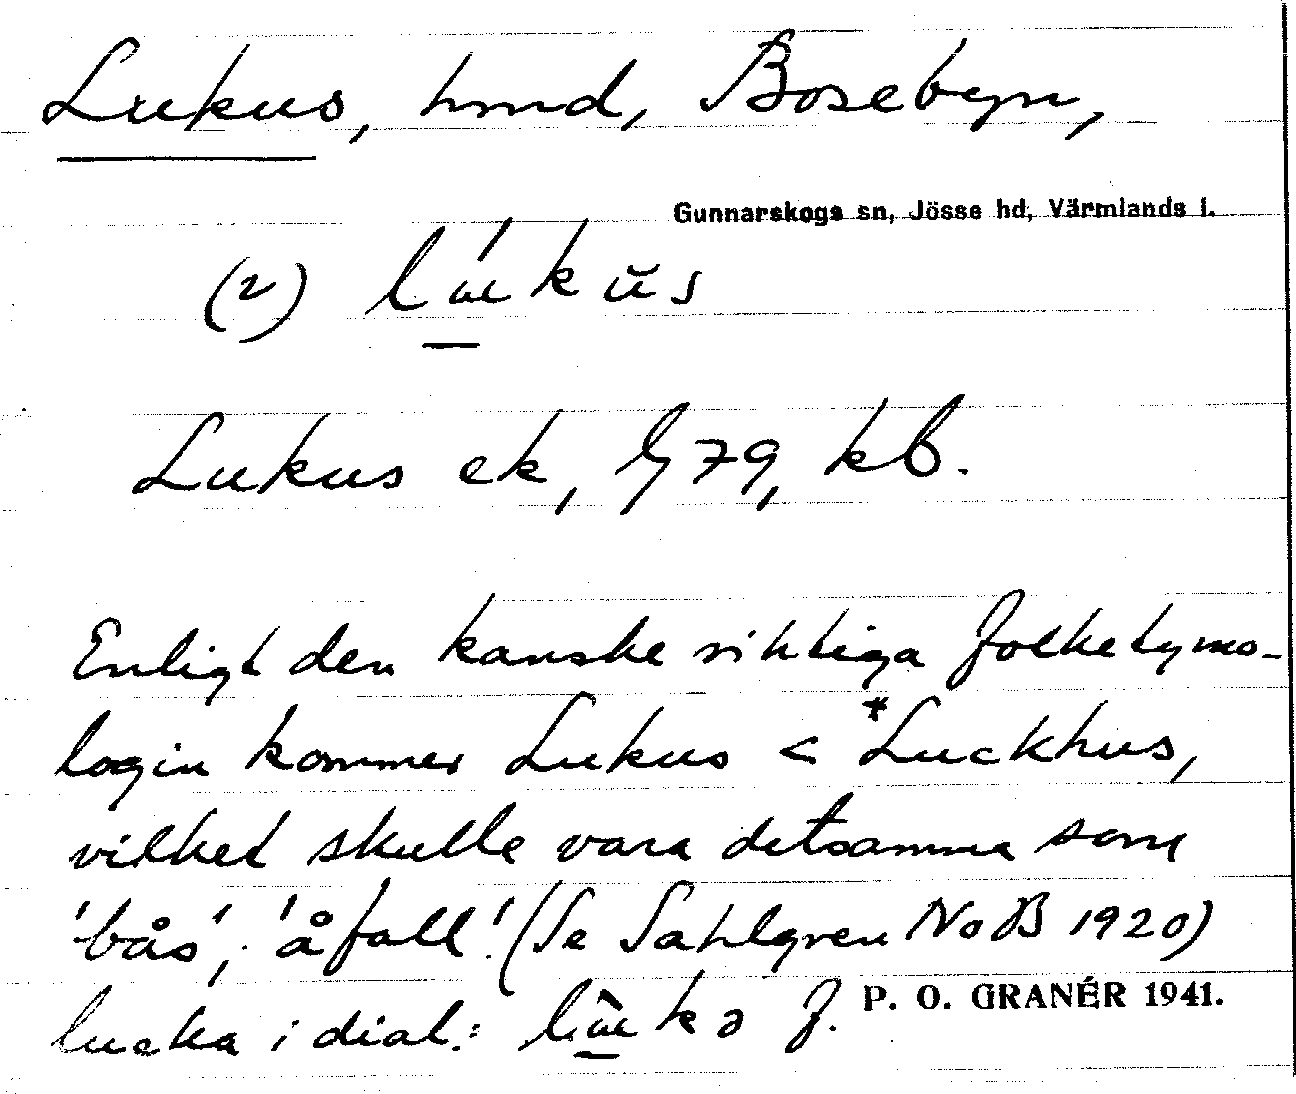 Lukus, hmd, Bosebyn,
Gunnarskogs sn, Jösse hd, Värmlands l.
(2) lúkŭs
Lukus ek, 79, kb.
Enligt den kanske riktiga folketymo-
login kommer Lukus < *Luckhus,
vilket skulle vara detsamma som
'bås', 'åfall'. (Se Sahlgren NoB 1920)
lucka i dial.: lùkə f.
P. O. GRANÉR 1941.